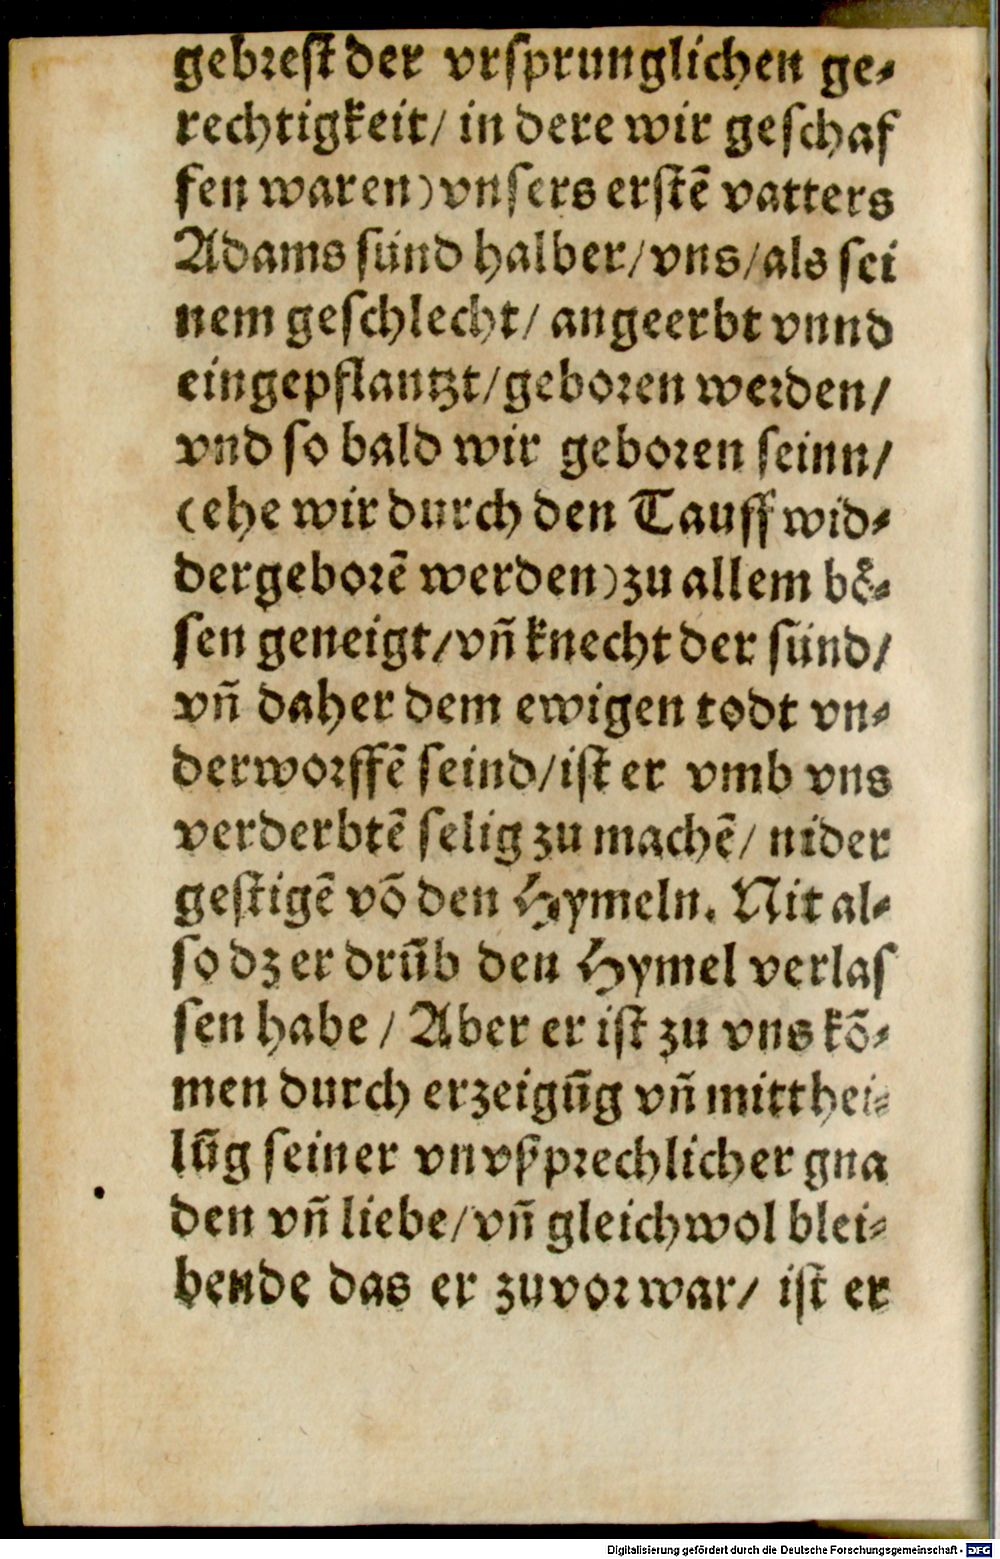 gebꝛeſt der vrſprunglichen ge⸗
rechtigkeit/ in dere wir geſchaf
fen waren) vnſers erſtẽ vatters
Adams ſünd halber/ vns/ als ſei
nem geſchlecht/ angeerbt vnnd
eingepflantzt/ geboꝛen werden/
vnd ſo bald wir geboꝛen ſeinn/
(ehe wir durch den Tauff wid⸗
dergeboꝛẽ werden) zu allem boͤ⸗
ſen geneigt/ vñ knecht der ſünd/
vñ daher dem ewigen todt vn⸗
derwoꝛffẽ ſeind/ iſt er vmb vns
verderbtẽ ſelig zu machẽ/ nider
geſtigẽ võ den Hymeln. Nit al⸗
ſo dz er drũb den Hymel verlaſ
ſen habe / Aber er iſt zu vns kõ⸗
men durch erzeigũg vñ mitthei⸗
lũg ſeiner vnvſpꝛechlicher gna
den vñ liebe/ vñ gleichwol blei⸗
bende das er zuvoꝛ war/ iſt er
Digitalisierung gefördert durch die Deutsche Forschungsgemeinschaft - DFG